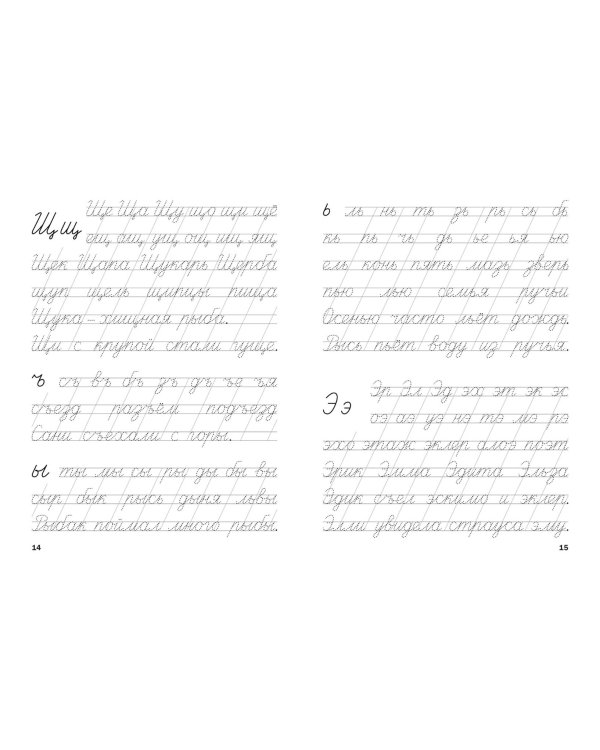 Щщ Ще Ща Щу що щи щё
ещ ащ ущ ощ ищ ящ
Щек Щапа Щукарь Щерба
щуп щель щипцы пища
Щука – хищная рыба.
Щи с крупой стали гуще.
ъ съ въ бъ зъ дъ ъе ъя
съезд разъём подъезд
Сани съехали с горы.
ы ты мы сы ры ды бы вы
сыр бык рысь дыня львы
Рыбак поймал много рыбы.
14
ь ль нь ть зь рь сь бь
кь пь чь дь ье ья ью
ель конь пять мазь зверь
пью лью семья ручьи
Осенью часто льёт дождь.
Рысь пьёт воду из ручья.
Ээ Эр Эл Эд эх эт эк эс
оэ аэ уэ нэ тэ мэ рэ
эхо этаж эклер алоэ поэт
Эрик Эмма Эдита Эльза
Эдик съел эскимо и эклер.
Элли увидела страуса эму.
15